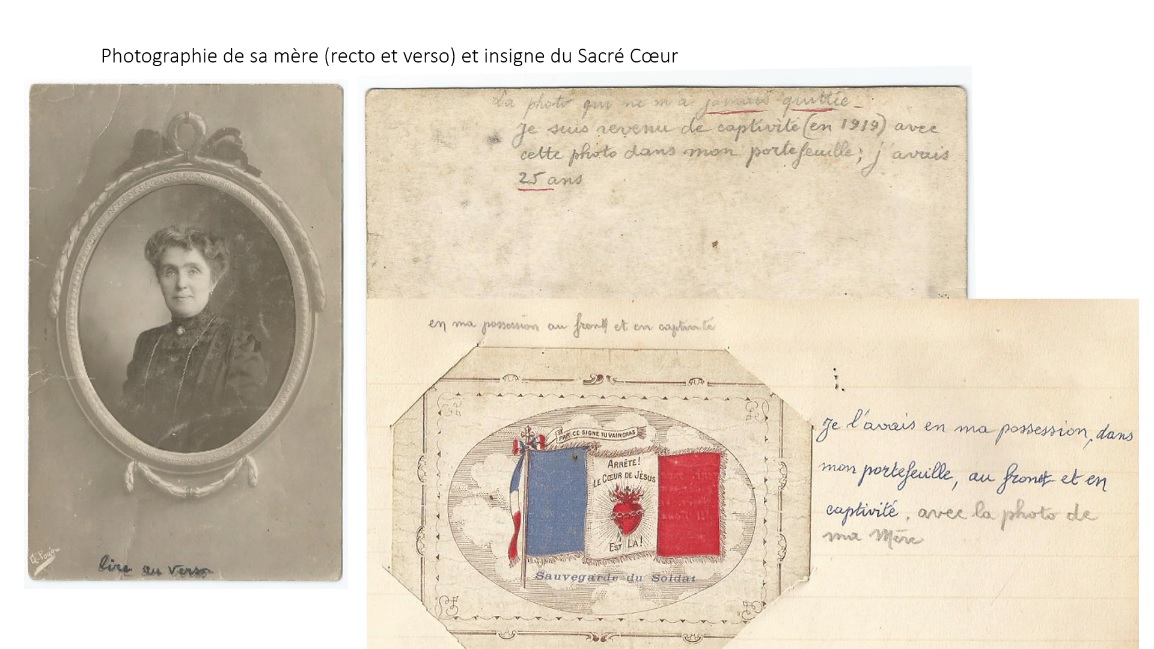 Photographie de sa mère (recto et verso) et insigne du Sacré Cœur
La photo qui ne m'a jamais quittée_
je suis revenu de captivité (en 1919) avec
cette photo dans mon portefeuille; j'avais
25 ans
lire au verso
en ma possession au front et en captivité
PAR CE SIGNE TU VAINCRAS
ARRÊTE!
LE CŒUR DE JÉSUS
EST LÀ!
Sauvegarde du Soldat
Je l'avais en ma possession, dans
mon portefeuille, au front et en
captivité, avec la photo de
ma Mère